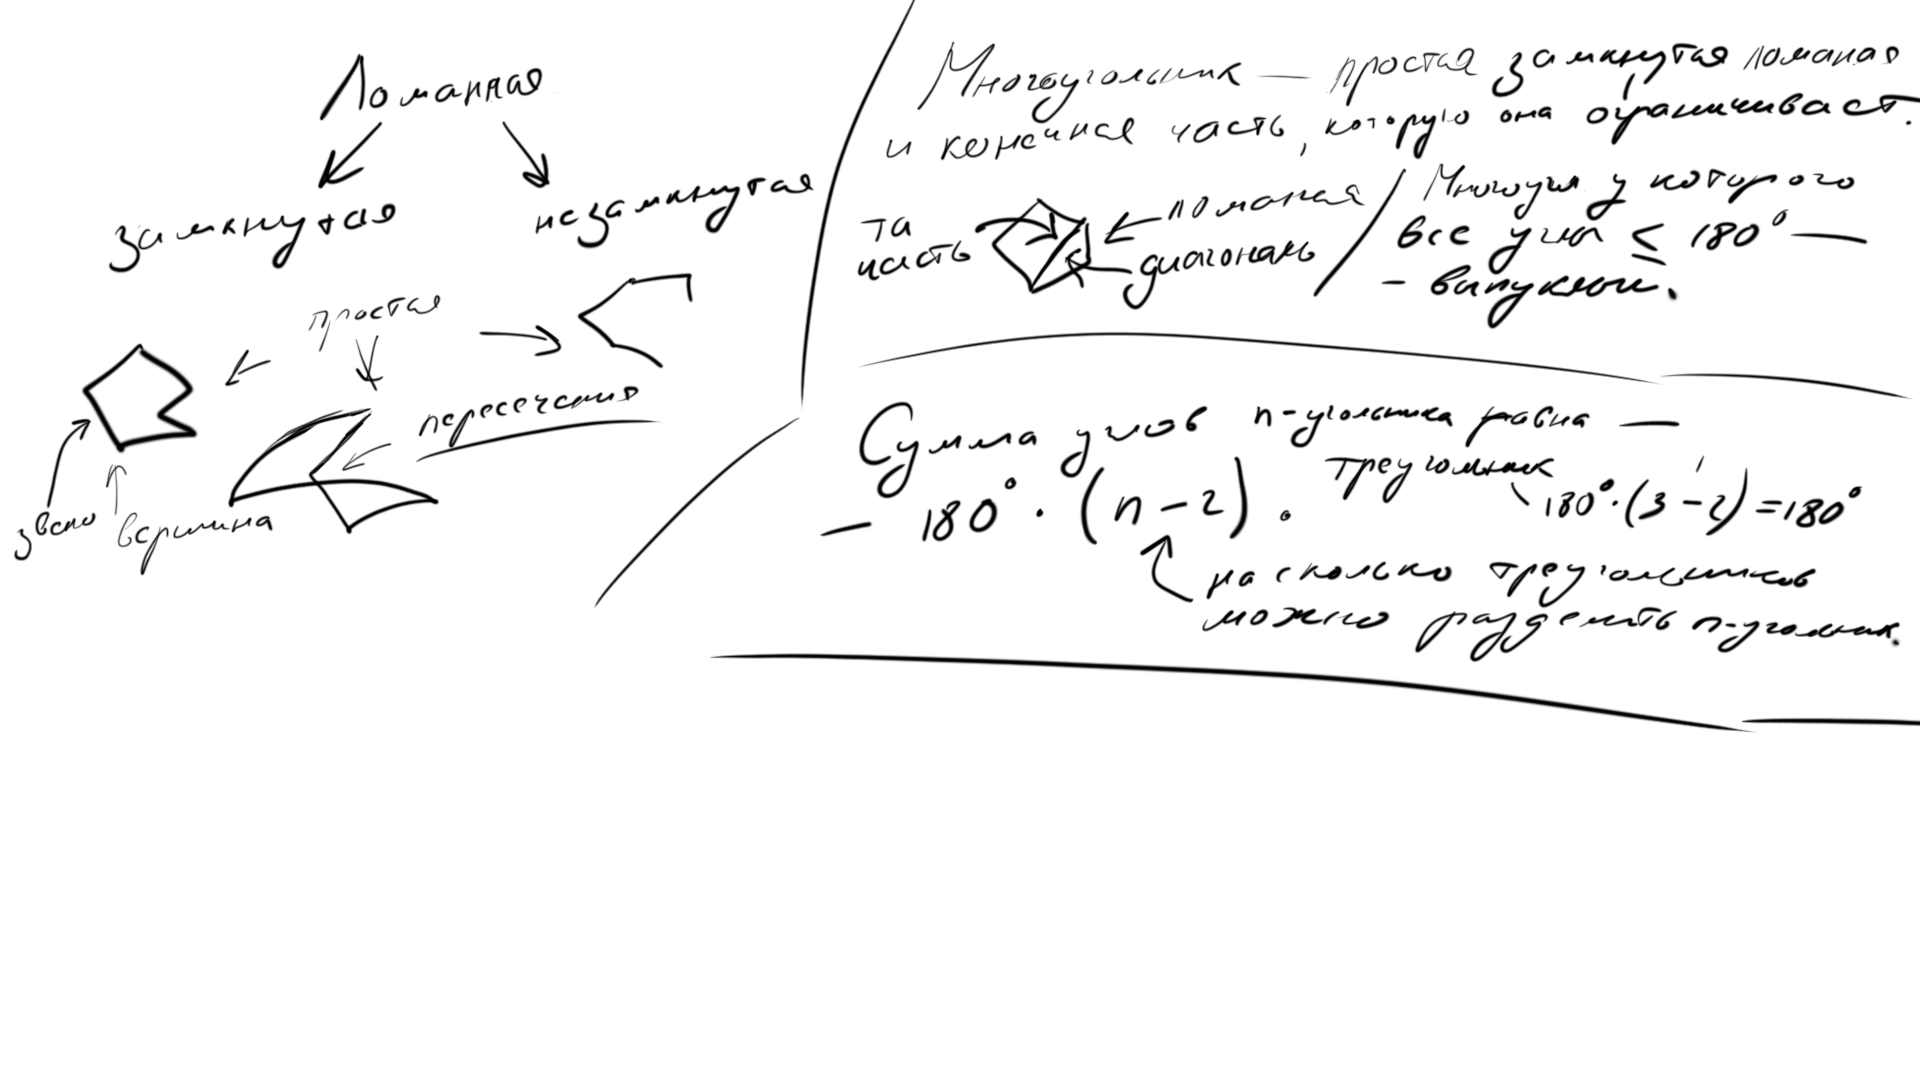 Ломанная
замкнутая
незамкнутая
простая
пересечения
звено
вершина
Многоугольник — простая замкнутая ломаная
и конечная часть, которую она ограничивает.
та
часть
ломаная
диагональ
Многоугл у которого
все углы ≤ 180° —
- выпуклый.
Сумма углов n-угольника равна —
— 180° · (n-2).
треугольник
180° · (3-2) = 180°
на сколько треугольников
можно разделить n-угольник.